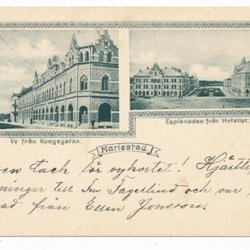 Vy från Kungsgatan.
Esplanaden från Hotellet.
Mariestad.
en Tack för vykortet! Hjärtl
ningar till Fru Fagerlind och var
ad från Ellen Jonsson.